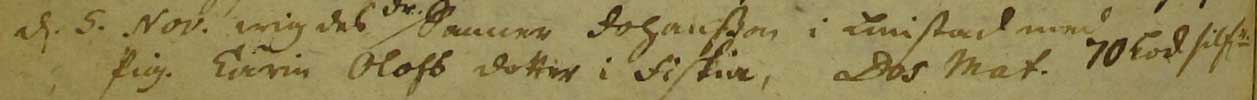 d. 5. Nov. wigdes dr. Sanner Johansson i Unistad med
Pig. Karin Olofs dotter i Fiskia, Dos Mat. 70 Lod silfr.